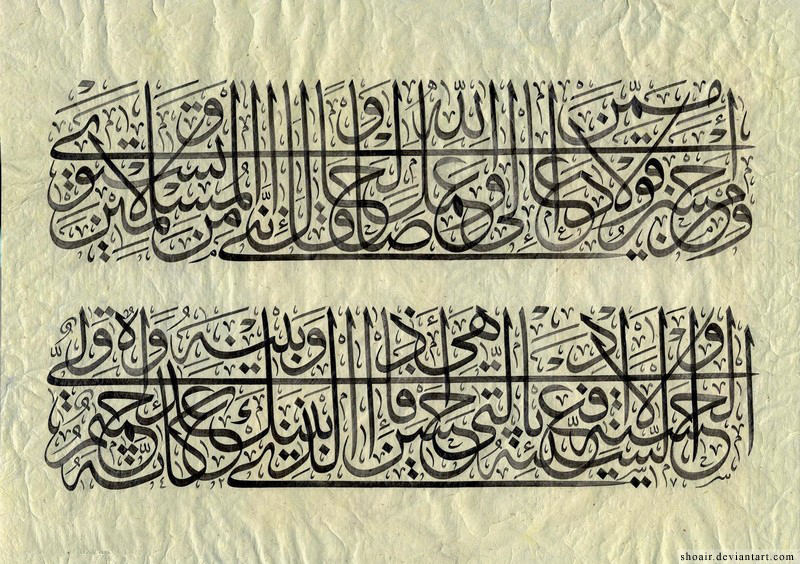 ومن أحسن قولا ممن دعا إلى الله وعمل صالحا وقال إنني من المسلمين ولا تستوي
الحسنة ولا السيئة ادفع بالتي هي أحسن فإذا الذي بينك وبينه عداوة كأنه ولي حميم
shoair.deviantart.com